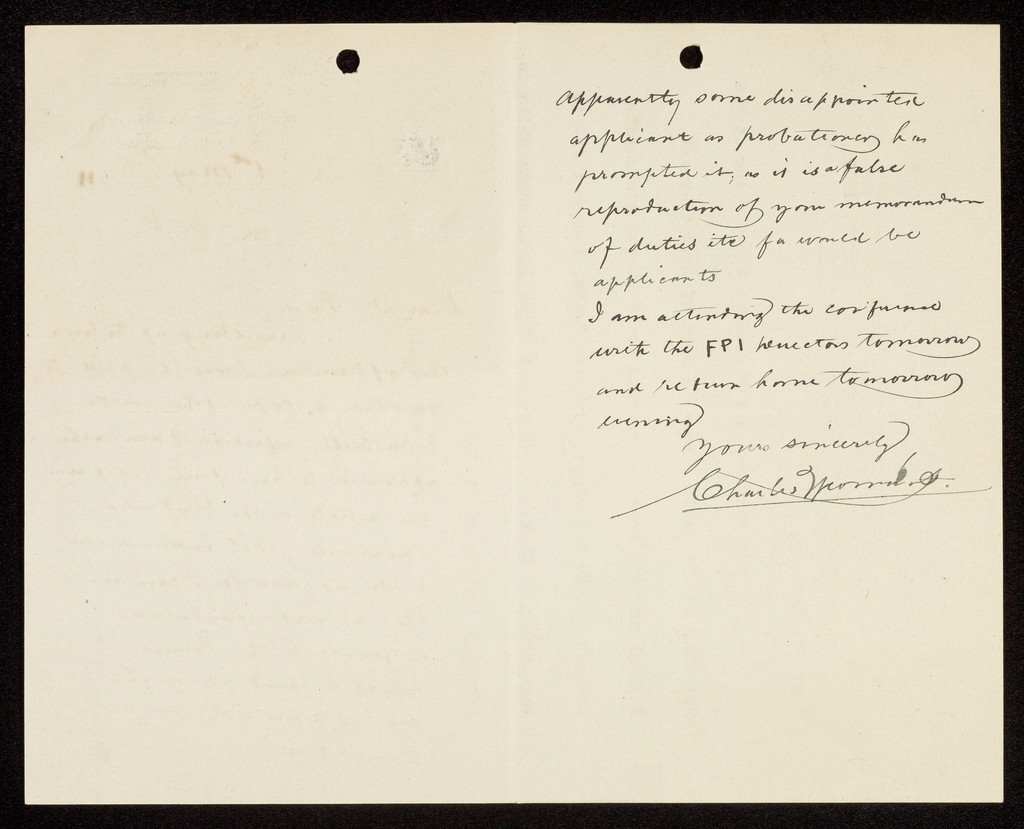 Apparently some disappointed
applicant as probationer has
prompted it; as it is a false
reproduction of your memorandum
of duties etc for would be
applicants
I am attending the conference
with the FPI Directors tomorrow
and return home tomorrow
evening
Yours sincerely
Charles